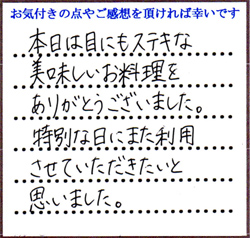 お気付きの点やご感想を頂ければ幸いです
本日は目にもステキな
美味しいお料理を
ありがとうございました。
特別な日にまた利用
させていただきたいと
思いました。